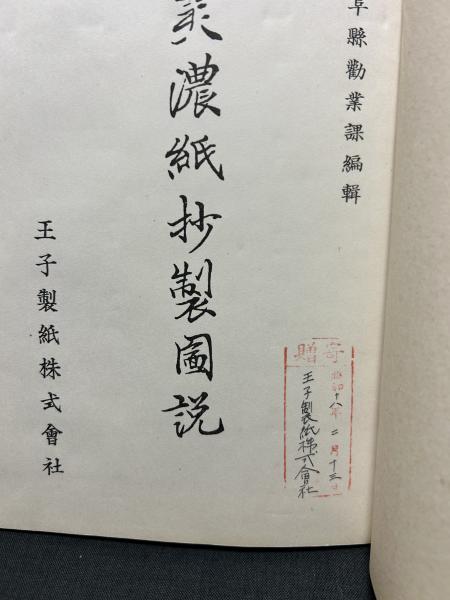 阜縣勸業課編輯
美濃紙抄製圖説
王子製紙株式會社
寄贈
昭和十八年二月十三日
王子製紙株式會社